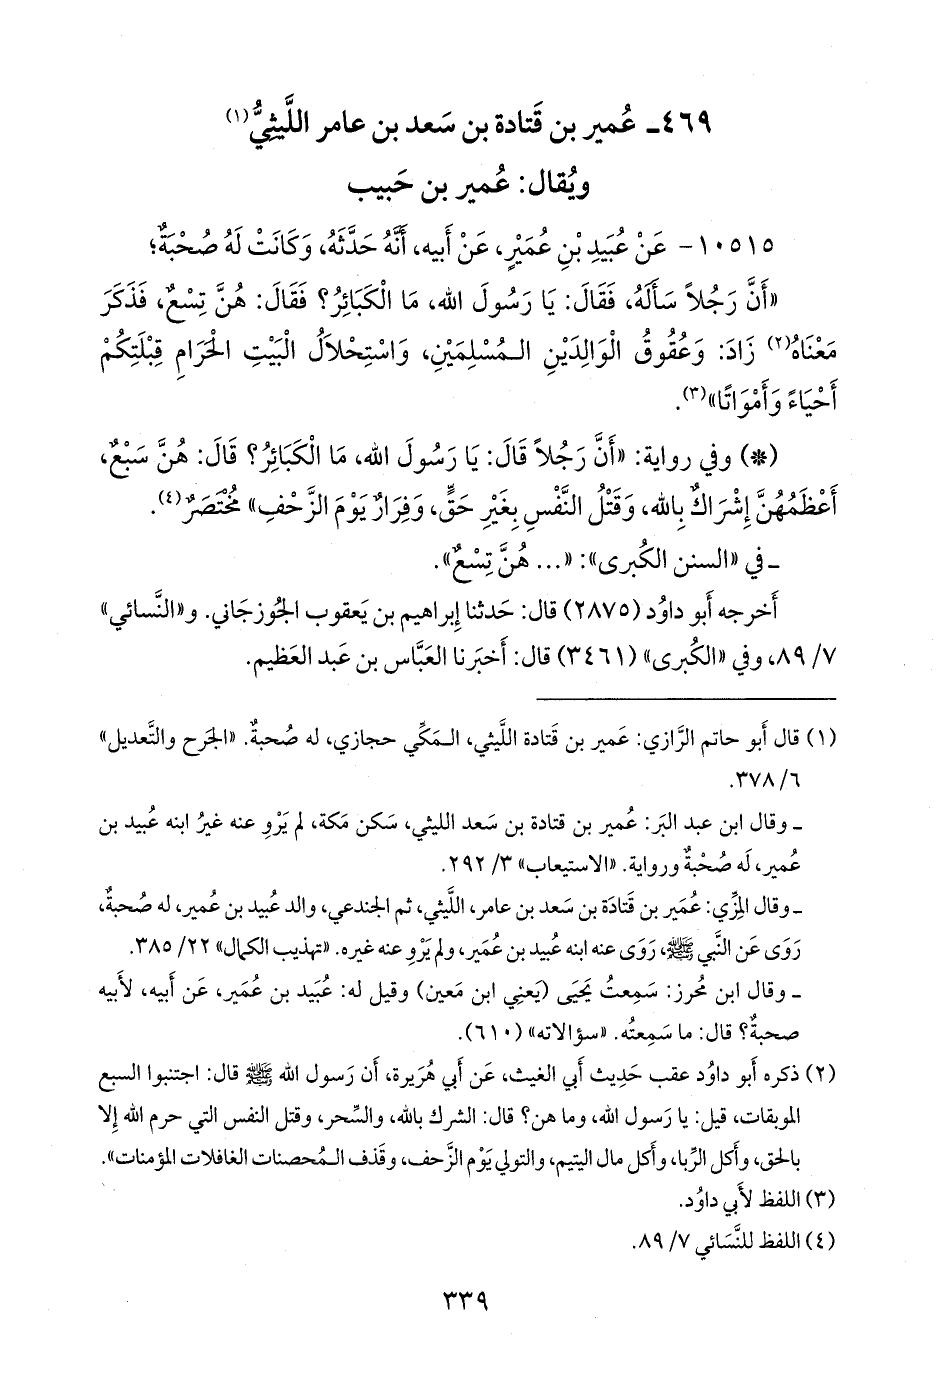 ٤٦٩ـ عُمير بن قَتادة بن سَعد بن عامر اللَّيثِيُّ(١)
ويُقال: عُمير بن حَبيب
١٠٥١٥ - عَنْ عُبَيدِ بْنِ عُمَيْرٍ، عَنْ أَبيه، أَنَّهُ حَدَّثَهُ، وَكَانَتْ لَهُ صُحْبَةٌ؛
«أَنَّ رَجُلاً سَأَلَهُ، فَقَالَ: يَا رَسُولَ الله، مَا الْكَبَائِرُ؟ فَقَالَ: هُنَّ تِسْعٌ، فَذَكَرَ
مَعْنَاهُ(٢) زَادَ: وَعُقوقُ الْوَالِدَيْنِ الـمُسْلِمَيْنِ، وَاسْتِحْلاَلُ الْبَيْتِ الْحَرَامِ قِبْلَتِكُمْ
أَحْيَاءً وَأَمْوَاتًا»(٣).
(*) وفي رواية: «أَنَّ رَجُلاً قَالَ: يَا رَسُولَ الله، مَا الْكَبَائِرُ؟ قَالَ: هُنَّ سَبْعٌ،
أَعْظَمُهُنَّ إِشْرَاكٌ بِالله، وَقَتْلُ النَّفْسِ بِغَيْرِ حَقٍّ، وَفِرَارٌ يَوْمَ الزَّحْفِ» مُخْتَصَرٌ(٤).
ـ في «السنن الكُبرى»: «... هُنَّ تِسْعٌ».
أَخرجه أَبو داوُد (٢٨٧٥) قال: حَدثنا إِبراهيم بن يَعقوب الجُوزجَاني. و«النَّسائي»
٧/ ٨٩، وفي «الكُبرى» (٣٤٦١) قال: أَخبَرنا العَبَّاس بن عَبد العَظيم.
(١) قال أَبو حاتم الرَّازي: عَمير بن قَتادة اللَّيثي، الـمَكِّي حجازي، له صُحبةٌ. «الجَرح والتَّعديل»
٦/ ٣٧٨.
ـ وقال ابن عبد البَر: عُمير بن قتادة بن سَعد الليثي، سَكن مَكة، لم يَرْوِ عنه غيرُ ابنه عُبيد بن
عُمير، لَه صُحْبَةٌ ورواية. «الاستيعاب» ٣/ ٢٩٢.
ـ وقال المِزِّي: عُمَير بن قَتادَة بن سَعد بن عامر، اللَّيثي، ثم الجندعي، والد عُبيد بن عُمير، له صُحبةٌ،
رَوَى عَن النَّبي ﷺ، رَوَى عنه ابنه عُبيد بن عُمَير، ولم يَرْوِ عنه غيره. «تهذيب الكمال» ٢٢/ ٣٨٥.
ـ وقال ابن مُحرز: سَمِعتُ يَحيَى (يَعنِي ابن مَعين) وقيل له: عُبَيد بن عُمَير، عَن أَبيه، لأَبيه
صحبةٌ؟ قال: ما سَمِعتُه. «سؤالاته» (٦١٠).
(٢) ذكره أَبو داوُد عقب حَدِيث أَبي الغيث، عَن أَبي هُرَيرة، أَن رَسول الله ﷺ قال: اجتنبوا السبع
الموبقات، قيل: يا رَسول الله، وما هن؟ قال: الشرك بالله، والسِّحر، وقتل النفس التي حرم الله إِلا
بالحق، وأَكل الرِّبا، وأَكل مال اليتيم، والتولي يَوْم الزَّحف، وقَذف الـمُحصنات الغافلات المؤمنات».
(٣) اللفظ لأَبي داوُد.
(٤) اللفظ للنَّسَائي ٧/ ٨٩.
٣٣٩